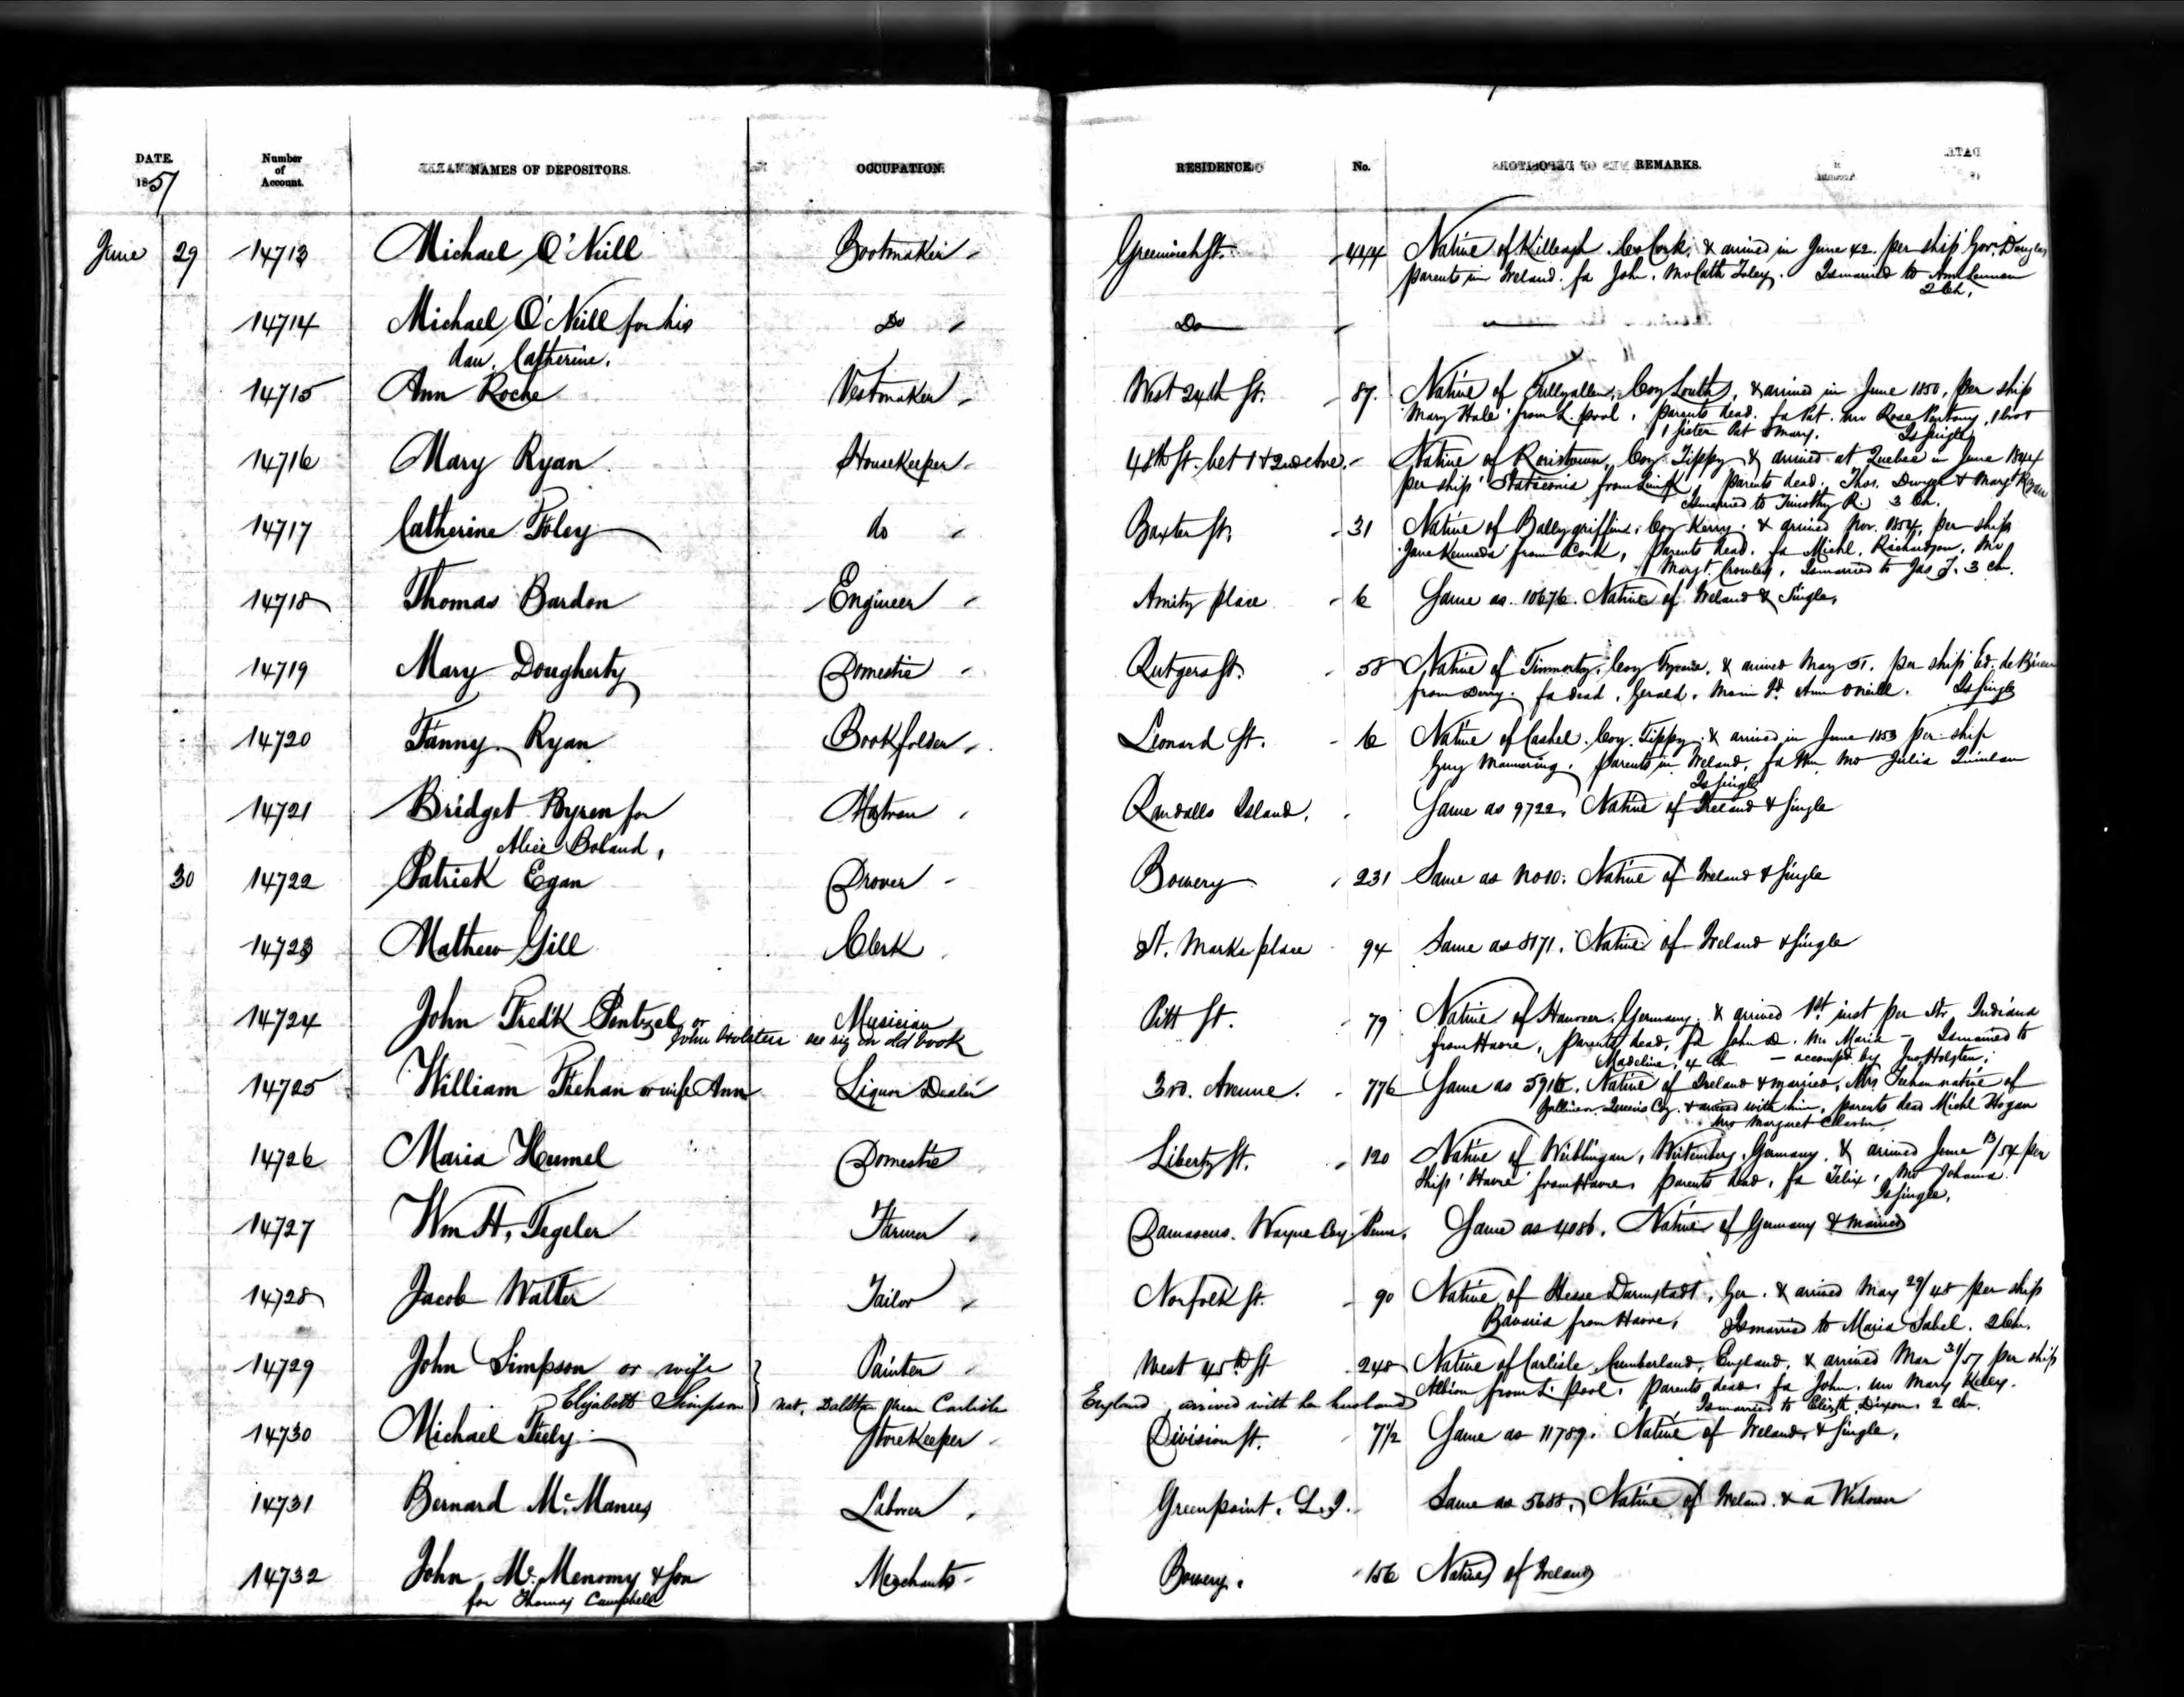 DATE. Number of Account. NAMES OF DEPOSITORS. OCCUPATION. RESIDENCE. No. REMARKS.
1857
June 29 14713 Michael O'Neill Bootmaker Greenwich St. 444 Native of Killeagh. Co Cork, & arrived in June 42. per ship Gov. Douglas
parents in Ireland. fa John. Mo Cath Foley. Is married to Ann Lennan
2 Ch.
14714 Michael O'Neill for his Do Do
dau. Catherine.
14715 Ann Roche Vestmaker West 24th St. 87. Native of Tullyallen, Coy Louth, & arrived in June 1850, per ship
'Mary Hale' from L. pool, parents dead. fa Pat. mo Rose 1 bro &
1 sister Pat & Mary. Is single
14716 Mary Ryan Housekeeper 48th St. bet 1 & 2nd Ave. Native of Coy. Tippy & arrived at Quebec in June 1844
per ship from parents dead. Thos. Dwyer & Mary Ryan
Is married to Timothy R. 3 Ch.
14717 Catherine Foley do Baxter St. 31 Native of Ballygriffin. Coy Kerry. & arrived Nov. 1854, per ship
'Jane Kennedy' from Cork, parents dead. fa Michl. Richardson. Mo
Margt. Crowley, Is married to Jas F. 3 ch.
14718 Thomas Bardon Engineer Amity place 6 Same as 10676. Native of Ireland & Single,
14719 Mary Dougherty Domestic Rutgers St. 58 Native of Coy Tyrone. & arrived May 51. per ship Ed.
from Derry. fa dead, Gerald. Mo in Id. Ann O'neill. Is single
14720 Fanny Ryan Bookfolder Leonard St. 6 Native of Cashel. Coy. Tippy. & arrived in June 1853 per ship
Guy Mannering. parents in Ireland, fa Wm Mo Julia Quinlan
Is single
14721 Bridget Byren for Matron Randalls Island. Same as 9722, Native of Ireland & Single
Alice Boland,
30 14722 Patrick Egan Drover Bowery 231 Same as No 10. Native of Ireland & Single
14723 Mathew Gill Clerk St. Marks place 94 Same as 8171. Native of Ireland & Single
14724 John Fredk Pentzel or Musician Pitt St. 79 Native of Hanover. Germany. & arrived 1st inst per Str Indiana
John Holsten see sig on old book from Havre, parents dead, fa John D. Mo Maria - Is married to
Madeline, 4 Ch - accompd. by Jno. Holsten.
14725 William Feehan or wife Ann Liquor Dealer 3rd. Avenue. 776 Same as 5916. Native of Ireland & married, Mrs Feehan native of
Queens Coy. & arrived with him, parents dead Michl Hogan
Mo Margaret
14726 Maria Humel Domestic Liberty St. 120 Native of Weiblingan, Wirtemberg. Germany. & arrived June 13/54 per
Ship 'Havre' from Havre. parents dead, fa Felix, Mo Johanna.
Is single.
14727 Wm H. Tegeler Farmer Damascus. Wayne Coy. Penn. Same as 4086. Native of Germany & married
14728 Jacob Walter Tailor Norfolk St. 90 Native of Hesse Darmstadt, Ger. & arrived May 29/48 per ship
Bavaria from Havre, Is married to Maria Sabel. 2 Ch.
14729 John Simpson or wife Painter West 45th St 248 Native of Carlisle, Cumberland, England, & arrived Mar 31/57 per ship
Elizabeth Simpson nat. Dalston near Carlisle England arrived with her husband Albion from L. pool, parents dead. fa John. mo Mary Kelly.
Is married to Elizth. Dixon. 2 ch.
14730 Michael Feely Storekeeper Division St. 7 1/2 Same as 11789. Native of Ireland, & Single.
14731 Bernard McManus Laborer Greenpoint. L.I. Same as 5688. Native of Ireland. & a Widower
14732 John McMenomy & Son Merchants Bowery. 156 Natives of Ireland
for Thomas Campbell